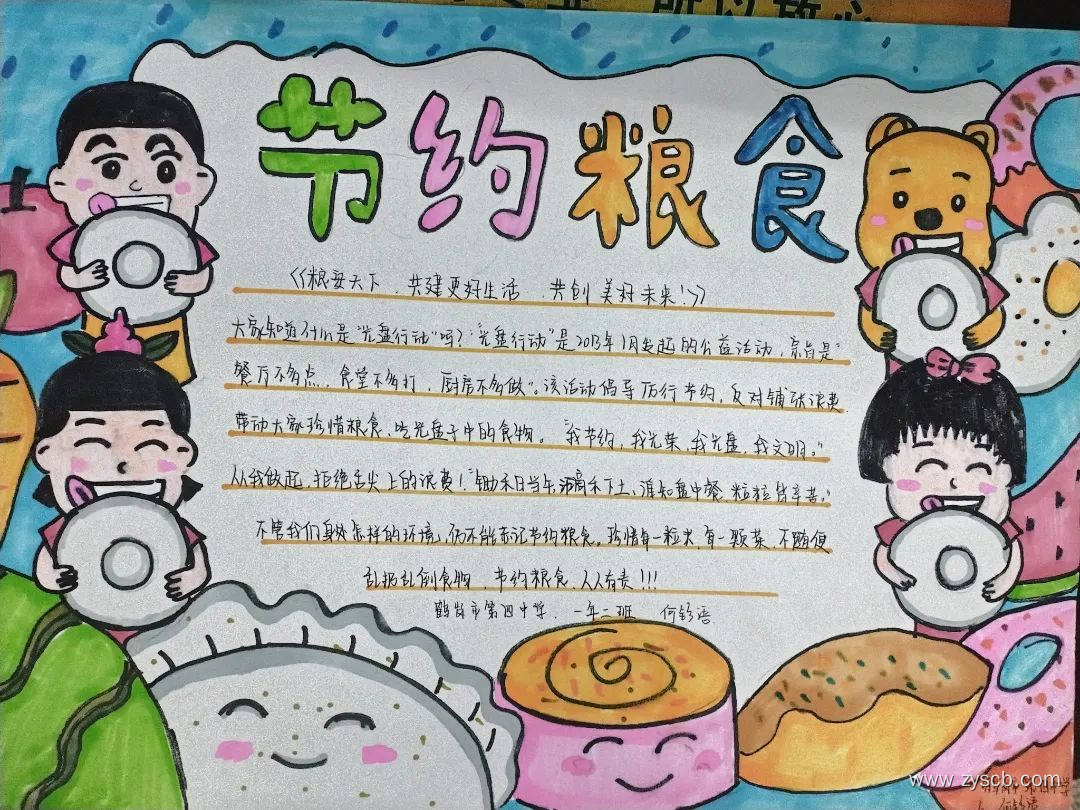 节约粮食
《粮安天下，共建更好生活，共创美好未来！》
大家知道什么是"光盘行动"吗？"光盘行动"是2013年1月发起的公益活动，宗旨是"
餐厅不多点，食堂不多打，厨房不多做"。该活动倡导厉行节约，反对铺张浪费
带动大家珍惜粮食、吃光盘子中的食物。"我节约，我光荣，我光盘，我文明。"
从我做起，拒绝舌尖上的浪费！"锄禾日当午，汗滴禾下土，谁知盘中餐，粒粒皆辛苦。"
不管我们身处怎样的环境，仍不能忘记节约粮食。珍惜每一粒米，每一颗菜，不随便
乱扔乱倒食物，节约粮食，人人有责！！！
鹤岗市第四中学，一年二班 何
www.zyscb.com